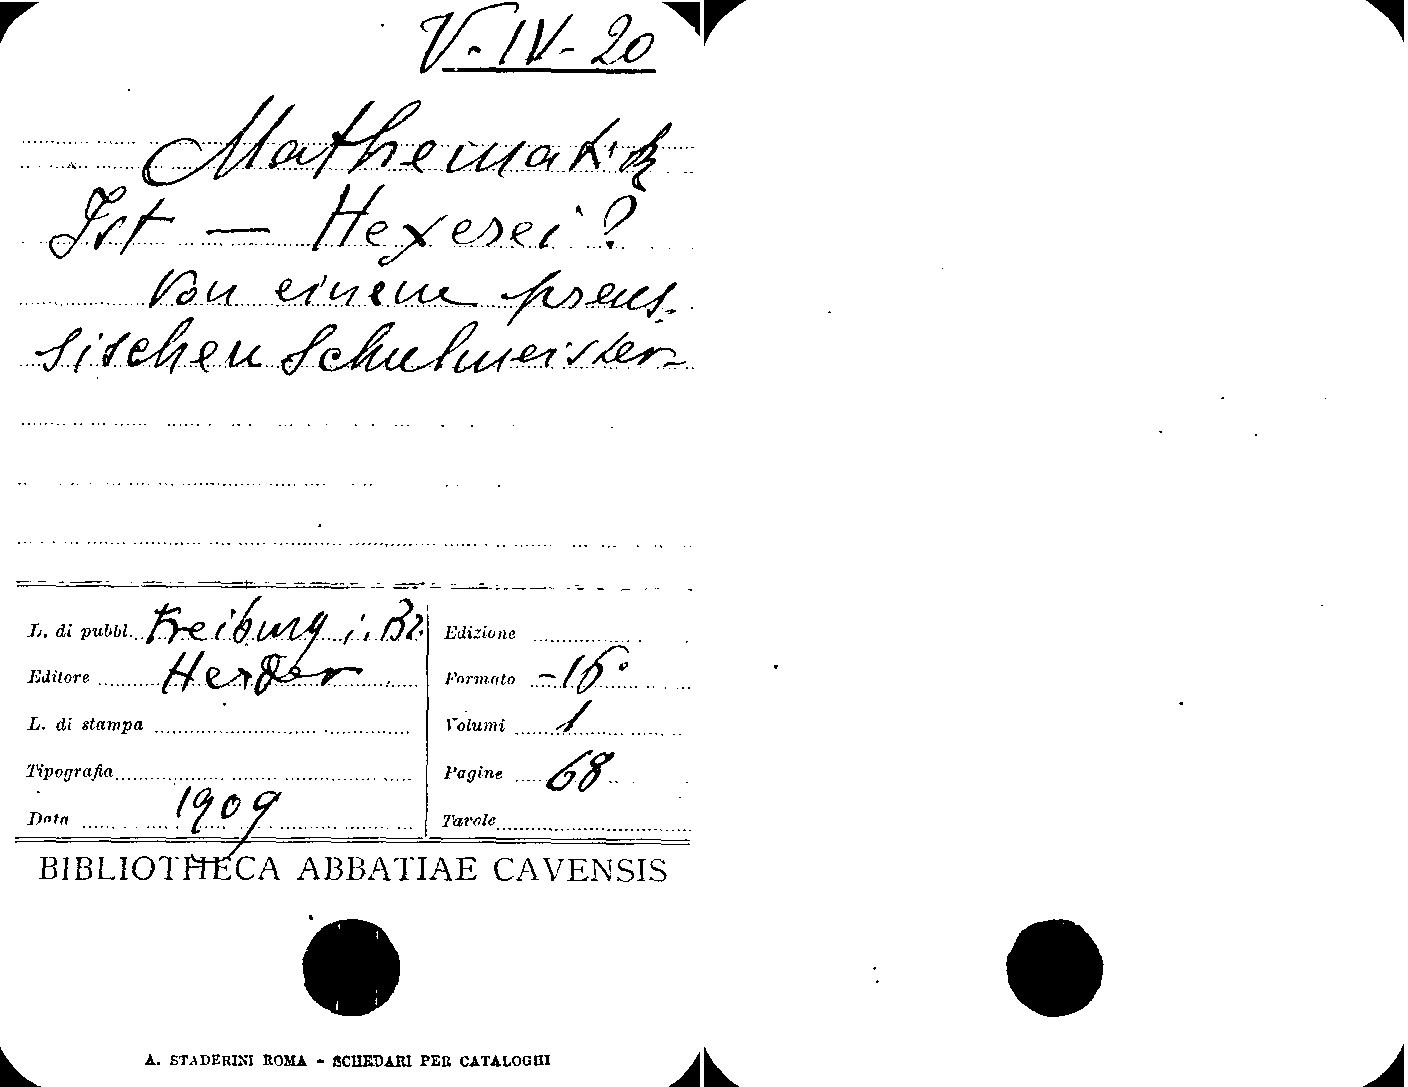 V-IV-20
Mathematik
Ist — Hexerei?
Von einem preus-
sischen Schulmeister-
L. di pubbl. Freiburg i. Br.
Edizione
Editore Herder
Formato -16°
L. di stampa
Volumi 1
Tipografia
Pagine 68
Data 1909
Tavole
BIBLIOTHECA ABBATIAE CAVENSIS
A. STADERINI ROMA - SCHEDARI PER CATALOGHI